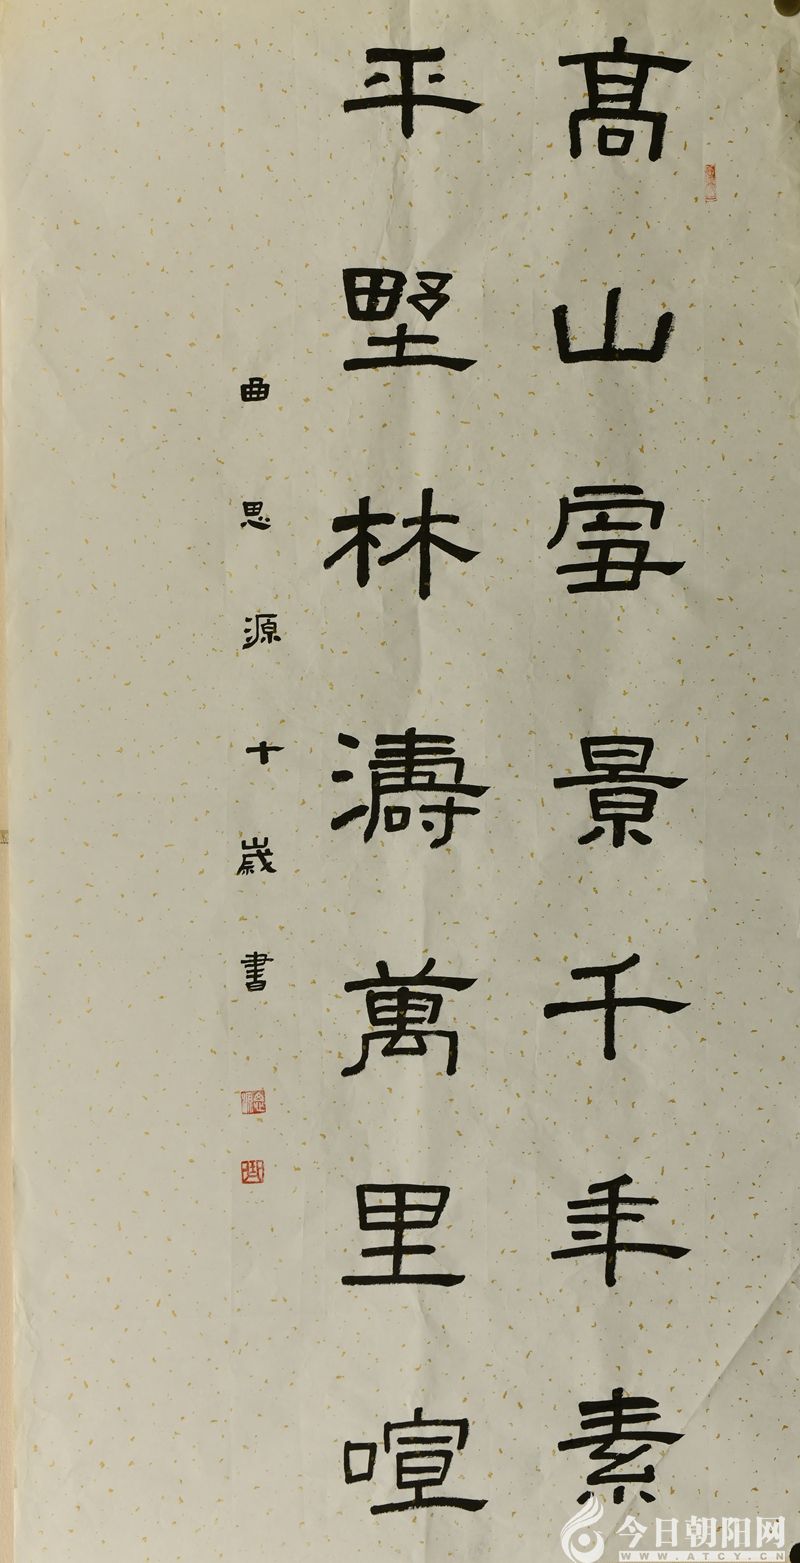 高山雪景千年素
平野林濤萬里喧
曲思源十歲書
今日朝阳网
WWW.ATCY.CN